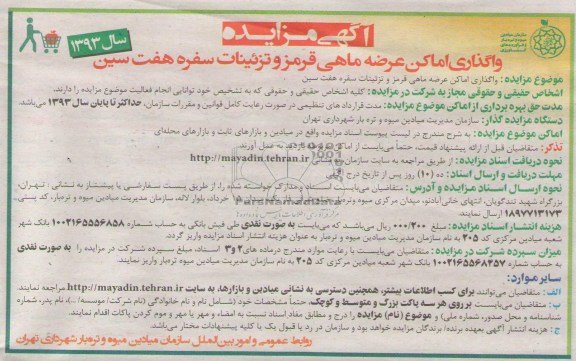 آگهی مزایده
سال ۱۳۹۳
واگذاری اماکن عرضه ماهی قرمز و تزئینات سفره هفت سین
موضوع مزایده: واگذاری اماکن عرضه ماهی قرمز و تزئینات سفره هفت سین
اشخاص حقیقی و حقوقی مجاز به شرکت در مزایده: کلیه اشخاص حقیقی و حقوقی که به تشخیص خود توانایی انجام فعالیت موضوع مزایده را دارند.
مدت حق بهره برداری از اماکن موضوع مزایده: مدت قرارداد های تنظیمی در صورت رعایت کامل قوانین و مقررات سازمان، حداکثر تا پایان سال ۱۳۹۳ می‌باشد.
دستگاه مزایده گذار: سازمان مدیریت میادین میوه و تره بار شهرداری تهران
اماکن موضوع مزایده: به شرح مندرج در لیست پیوست اسناد مزایده واقع در میادین و بازارهای ثابت و بازارهای محله‌ای
تذکر: متقاضیان قبل از ارائه پیشنهاد قیمت، حتماً می‌بایست از اماکن بازدید به عمل آورند.
نحوه دریافت اسناد مزایده: از طریق مراجعه به سایت سازمان به نشانی http://mayadin.tehran.ir
مهلت دریافت و ارسال اسناد: ده (۱۰) روز پس از تاریخ درج آگهی
نحوه ارسال اسناد مزایده و آدرس: متقاضیان می‌بایست اسناد و مدارک خواسته شده را، از طریق پست سفارشی یا پیشتاز به نشانی: تهران،
بزرگراه شهید تندگویان، انتهای خانی آبادنو، میدان مرکزی میوه و تره‌بار خرداد، بلوار لاله، سازمان مدیریت میادین میوه و تره‌بار، کد پستی،
۱۸۹۷۷۱۳۱۷۳ ارسال نمایند.
هزینه انتشار اسناد مزایده: مبلغ ۲۰۰/۰۰۰ ریال می‌باشد که می‌بایست به صورت نقدی طی فیش بانکی به حساب شماره ۱۰۰۲۱۶۵۵۵۶۸۵۸ بانک شهر
شعبه میادین مرکزی کد ۲۰۵ به نام سازمان مدیریت میادین میوه و تره‌بار به عنوان هزینه انتشار اسناد مزایده واریز گردد.
میزان سپرده شرکت در مزایده: متقاضیان می‌بایست با رعایت موارد مندرج در ماده های ۲ و ۳ اسناد، مبلغ سپرده شرکت در مزایده را به صورت نقدی
به حساب شماره ۱۰۰۲۱۶۵۵۶۸۴۵۷ بانک شهر شعبه میادین مرکزی کد ۲۰۵ به نام سازمان مدیریت میادین میوه و تره بار واریز نمایند.
سایر موارد:
الف: متقاضیان می‌توانند برای کسب اطلاعات بیشتر، همچنین دسترسی به نشانی میادین و بازارها، به سایت http://mayadin.tehran.ir مراجعه نمایند.
ب: متقاضیان می‌بایست بر روی هر سه پاکت بزرگ و متوسط و کوچک، حتماً مشخصات خود (شامل نام و نام خانوادگی (نام شرکت/موسسه/...)، نام پدر، شماره
شناسنامه و محل صدور، شماره ملی) و موضوع (نام) مزایده را درج و مطابق مفاد اسناد نسبت به امضاء و مهر یا مهر و موم کردن پاکات اقدام نمایند.
ج: هزینه انتشار آگهی بعهده برنده/برندگان مزایده خواهد بود و سازمان در رد یا قبول یک یا کلیه پیشنهادات مختار می‌باشد.
روابط عمومی و امور بین الملل سازمان میادین میوه و تره بار شهرداری تهران